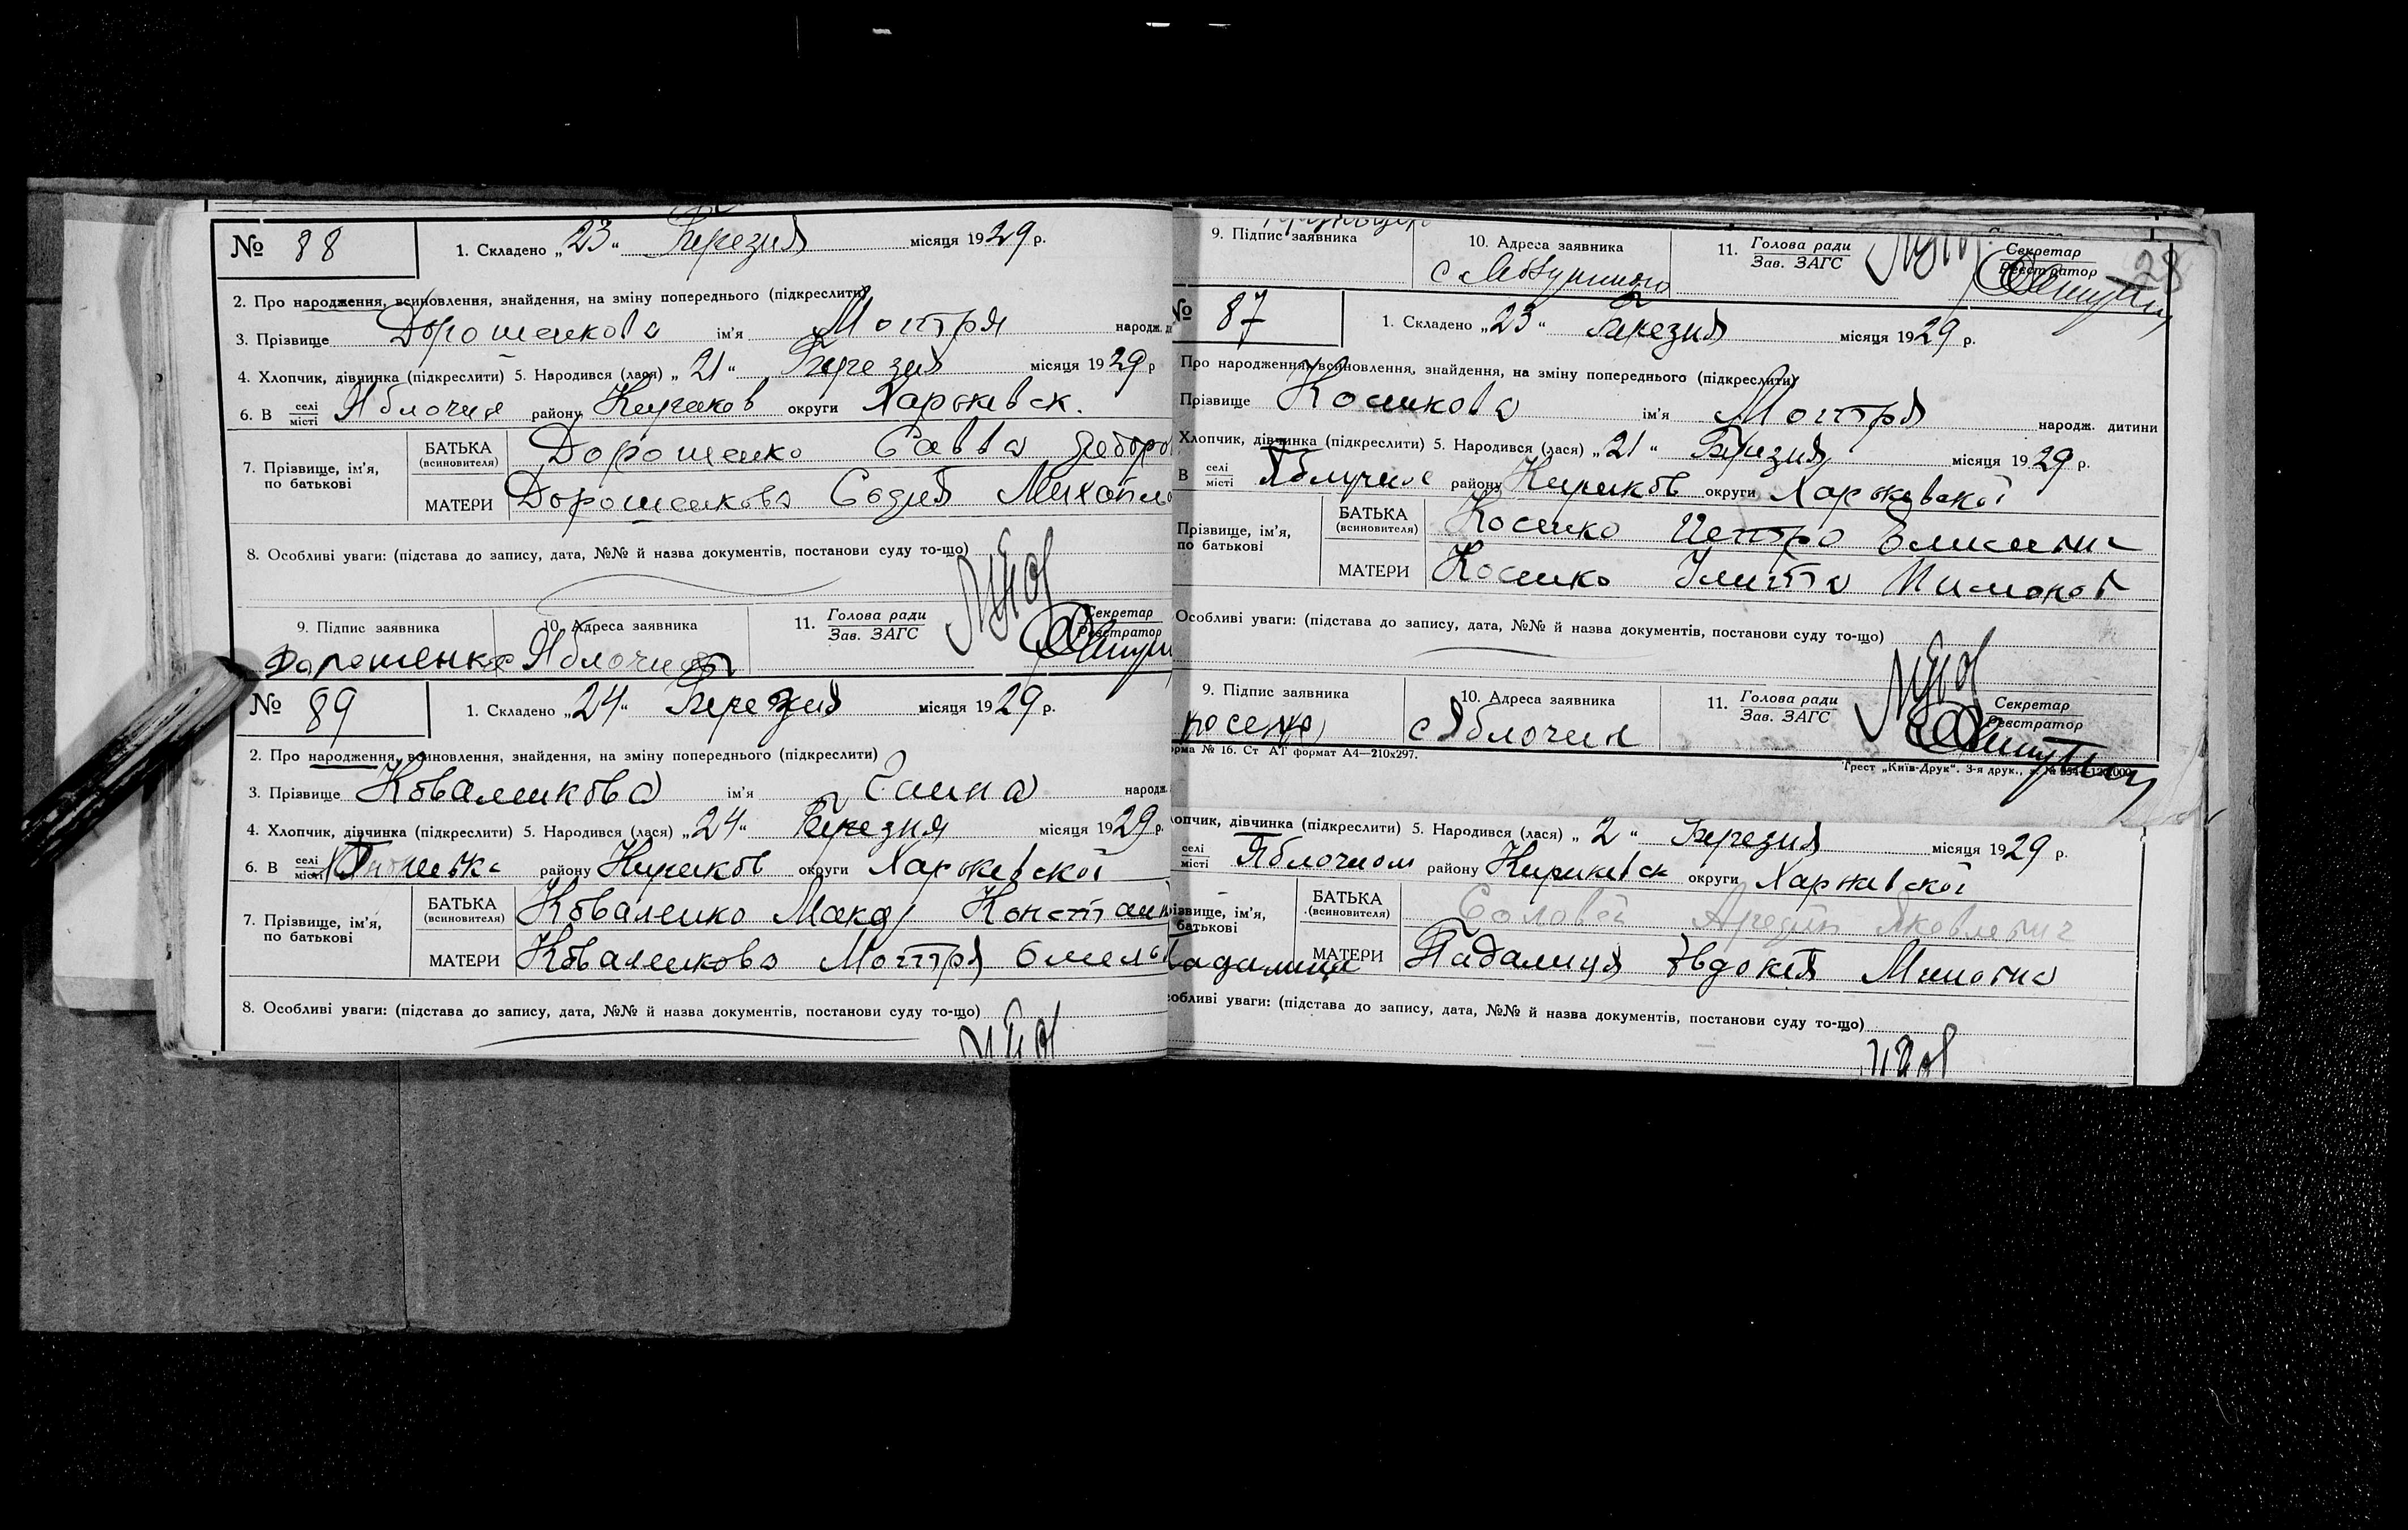 № 88
1. Складено „23“ Березня місяця 1929 р.
2. Про народження, всиновлення, знайдення, на зміну попереднього (підкреслити)
3. Прізвище Дорошенкова ім'я Мотря народж.
4. Хлопчик, дівчинка (підкреслити) 5. Народився (лася) „21“ Березня місяця 1929 р
6. В селі місті Яблочне району Кириков округи Харькевск.
7. Прізвище, ім'я, по батькові
БАТЬКА (всиновителя) Дорошенко Савва Федоро
МАТЕРИ Дорошенкова Софія Михайло
8. Особливі уваги: (підстава до запису, дата, №№ й назва документів, постанови суду то-що)
9. Підпис заявника 10. Адреса заявника 11. Голова ради Зав. ЗАГС Секретар Реєстратор
Дорошенко Яблочне
№ 89
1. Складено „24“ Березня місяця 1929 р.
2. Про народження, всиновлення, знайдення, на зміну попереднього (підкреслити)
3. Прізвище Коваленкова ім'я Ганна народж.
4. Хлопчик, дівчинка (підкреслити) 5. Народився (лася) „24“ Березня місяця 1929 р.
6. В селі місті району Кириков округи Харькевської
7. Прізвище, ім'я, по батькові
БАТЬКА (всиновителя) Коваленко Макар Констан
МАТЕРИ Коваленкова Мотря Омель
8. Особливі уваги: (підстава до запису, дата, №№ й назва документів, постанови суду то-що)
9. Підпис заявника 10. Адреса заявника 11. Голова ради Зав. ЗАГС Секретар Реєстратор
28
№ 87
1. Складено „23“ Березня місяця 1929 р.
Про народження, всиновлення, знайдення, на зміну попереднього (підкреслити)
Прізвище Косенкова ім'я Мотря народж. дитини
Хлопчик, дівчинка (підкреслити) 5. Народився (лася) „21“ Березня місяця 1929 р.
В селі місті Яблучне району Кириков округи Харькевської
Прізвище, ім'я, по батькові
БАТЬКА (всиновителя) Косенко Петро
МАТЕРИ Косенко Улита
Особливі уваги: (підстава до запису, дата, №№ й назва документів, постанови суду то-що)
9. Підпис заявника 10. Адреса заявника 11. Голова ради Зав. ЗАГС Секретар Реєстратор
косенко с Яблочне
орма № 16. Ст АТ формат А4—210х297.
Трест „Київ-Друк“. 3-я друк.,
лопчик, дівчинка (підкреслити) 5. Народився (лася) „2“ Березня місяця 1929 р.
селі місті Яблочном району Кириковск округи Харькевської
різвище, ім'я, батькові
БАТЬКА (всиновителя) Соловей Яковлевич
МАТЕРИ Падалиця Явдокія
адалиця
собливі уваги: (підстава до запису, дата, №№ й назва документів, постанови суду то-що)